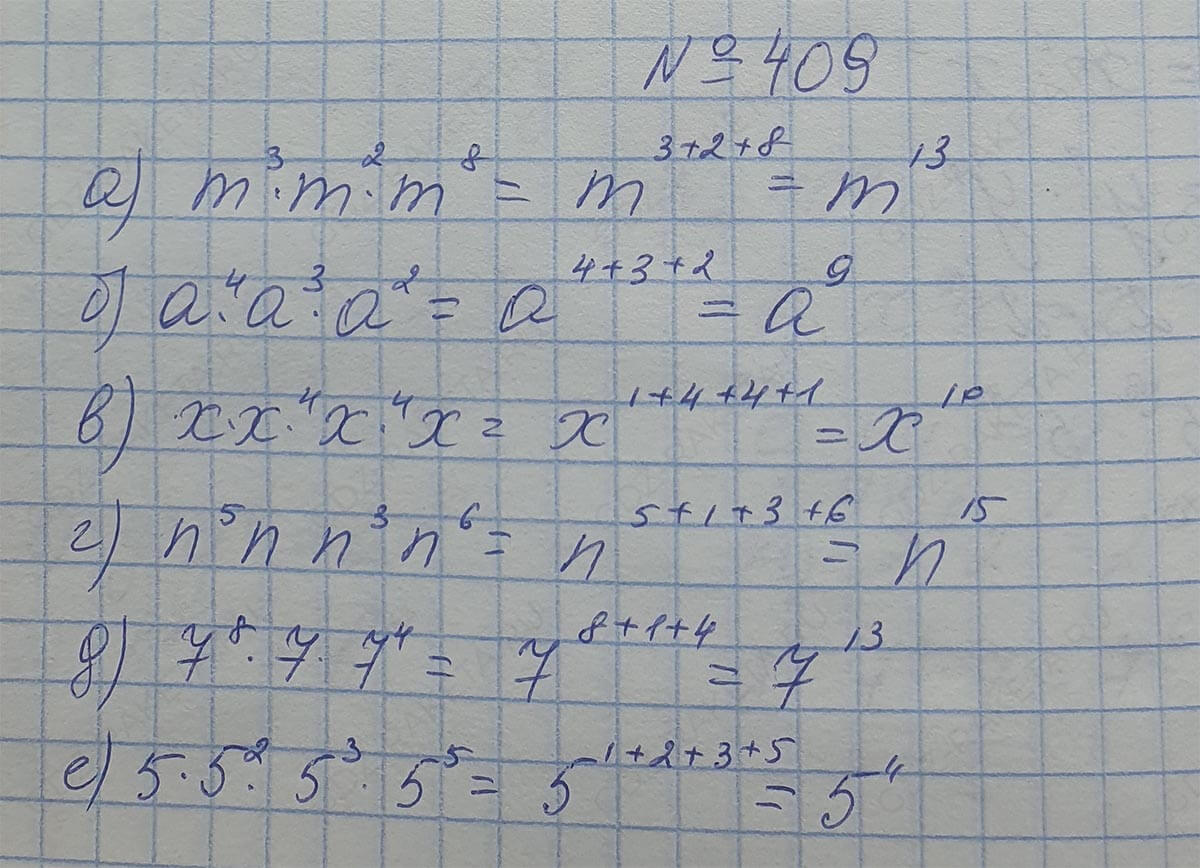 №409
а) m³·m²·m⁸ = m³⁺²⁺⁸ = m¹³
б) a⁴·a³·a² = a⁴⁺³⁺² = a⁹
в) x·x⁴·x⁴·x = x¹⁺⁴⁺⁴⁺¹ = x¹⁰
г) n⁵ n n³ n⁶ = n⁵⁺¹⁺³⁺⁶ = n¹⁵
д) 7⁸·7·7⁴ = 7⁸⁺¹⁺⁴ = 7¹³
е) 5·5²·5³·5⁵ = 5¹⁺²⁺³⁺⁵ = 5⁴